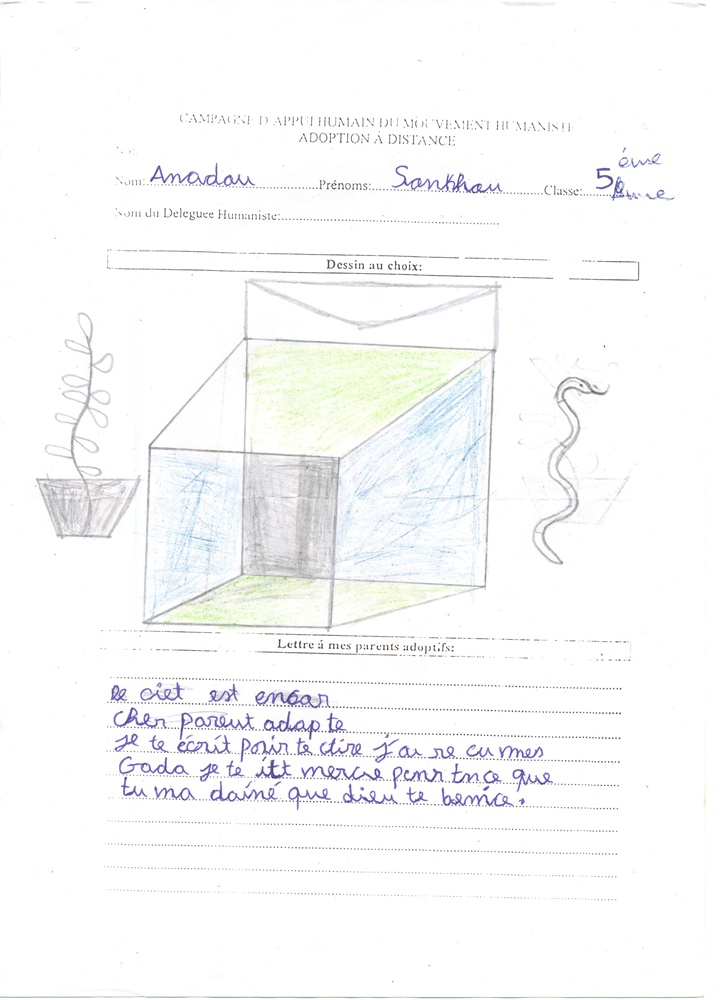 CAMPAGNE D'APPUI HUMAIN DU MOUVEMENT HUMANISTE
ADOPTION À DISTANCE
Nom: Anadau Prénoms: Sankhau Classe: 5 ème
Nom du Deleguee Humaniste:
Dessin au choix:
Lettre á mes parents adoptifs:
le ciet est enbar
cher parent adapte
je te écrit pour te dire j'ai re cu mes
Gada je te itt mercie pour tnce que
tu ma dainé que dieu te benice.